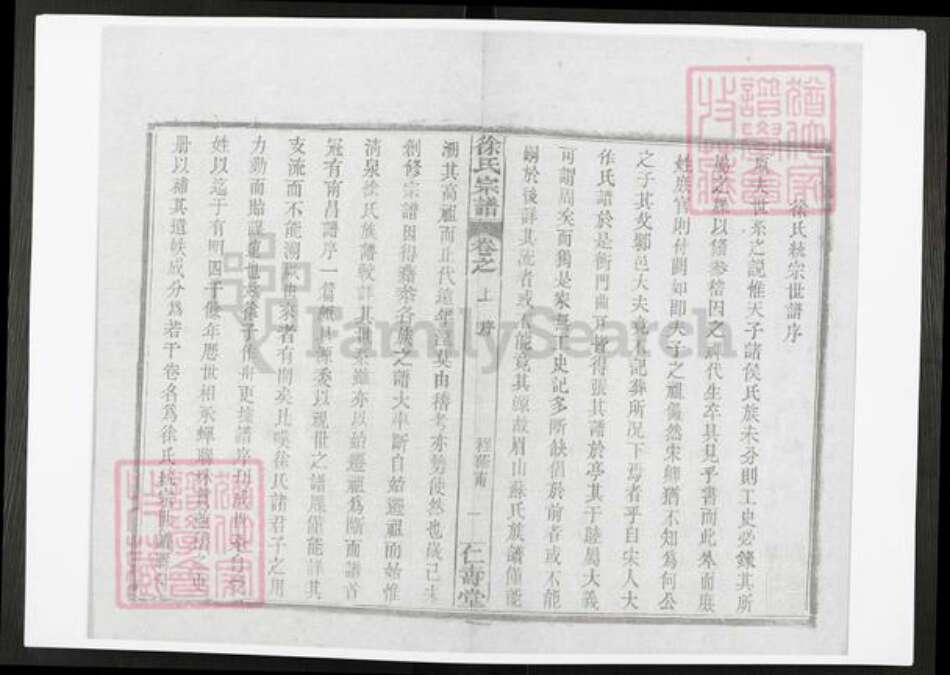 徐氏統宗世譜序
夫世系之說惟天子諸侯氏族未分則工史必錄其所
之以備參稽因之歷代生卒具見乎書而此外而庶
姓族官則付闕如即夫子之祖儼然宋卿猶不知為何公
之子其父鄹邑大夫竟不記葬所況下焉者乎自宋人大
作氏譜於是衙門曲可皆得張其譜於亭其于睦屬大義
可謂周矣而獨是家無工史記多所缺倡於前者或不能
嗣於後詳其流者或不能竟其源故眉山蘇氏族譜僅能
溯其高祖而止代遠年湮莫由稽考亦勢使然也歲己未
創修宗譜因得各族之譜大率斷自始遷祖而始惟
清泉徐氏族譜較詳其世系雖亦以始遷祖為斷而譜首
冠有南昌譜序一篇頗具源委以視世之譜牒僅能詳其
支流而不能溯厥世系者有間矣此嘆徐氏諸君子之用
力勤而貽謀
姓以迄于有明四千餘年歷世相承蟬聯
冊以補其遺軼成分為若干卷名為徐氏統宗世譜
徐氏宗譜
卷之
上
序
一
仁壽堂
猶他家譜學會收藏
猶他家譜學會收藏
FamilySearch